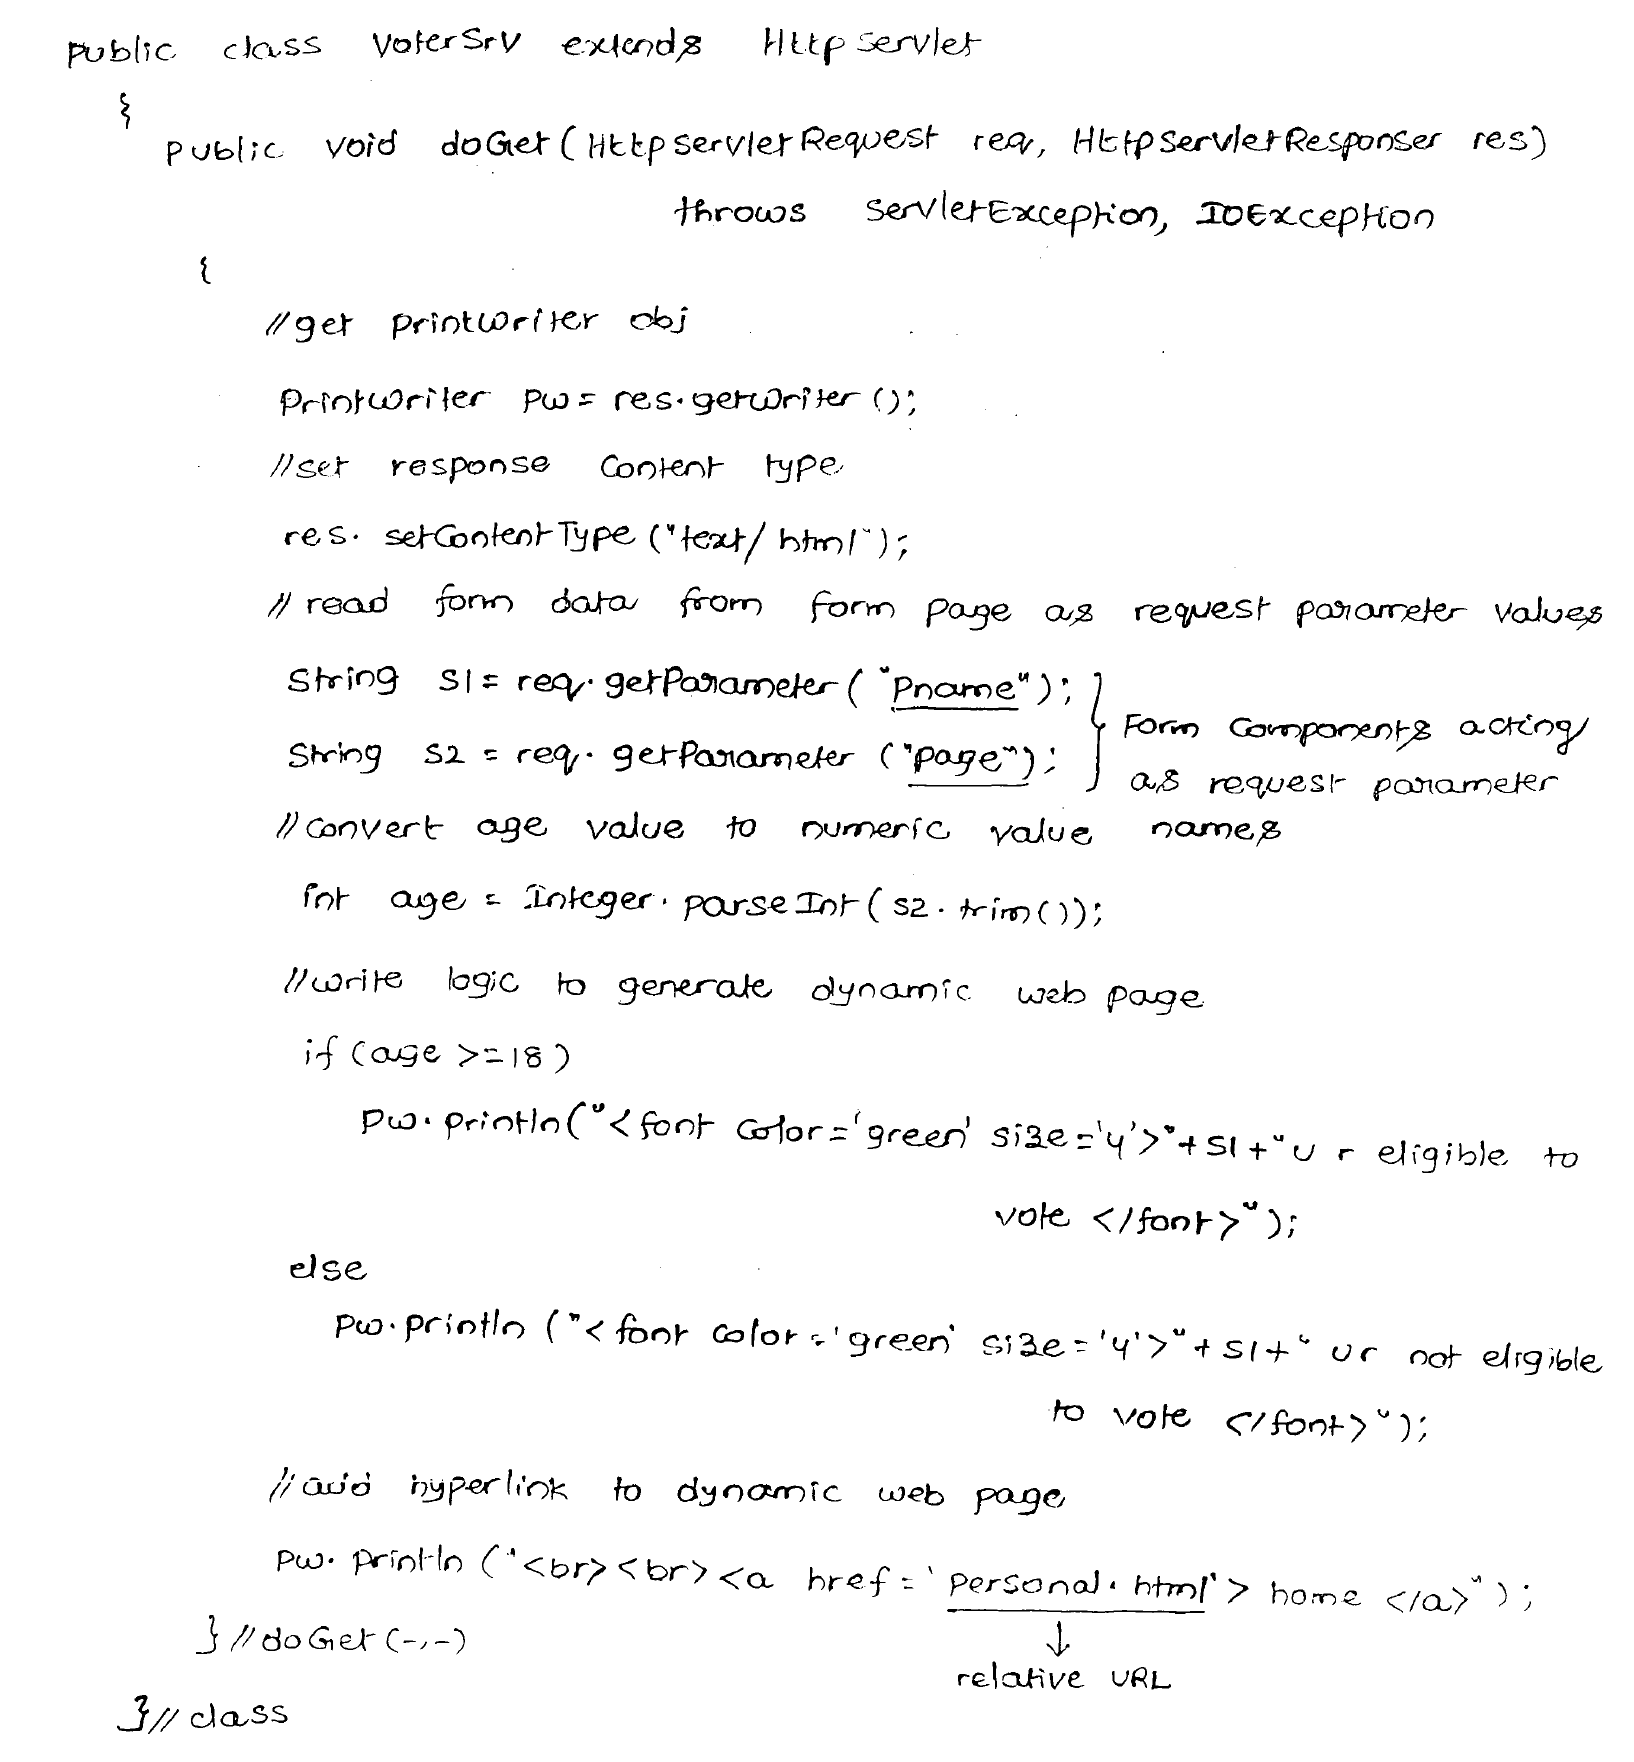 public class VoterSrv extends HttpServlet
{
public void doGet(HttpServletRequest req, HttpServletResponser res)
throws ServletException, IOException
{
//get printwriter obj
PrintWriter pw= res.getWriter();
//set response content type
res. setContentType ("text/html");
// read form data from form page as request parameter values
String s1= req.getParameter( "pname");
Form Components acting
String s2 = req. getParameter ("page");
as request parameter
//convert age value to numeric value names
int age = Integer. parseInt( s2. trim());
//write logic to generate dynamic web page
if (age >=18)
pw.println("<font color='green' size='4'>"+s1+"u r eligible to
vote </font>");
else
pw.println ("<font color='green' size='4'>"+s1+" ur not eligible
to vote </font>");
//add hyperlink to dynamic web page
pw. println ("<br><br><a href='personal.html'> home </a>");
}//doGet(-,-)
relative URL
}//class